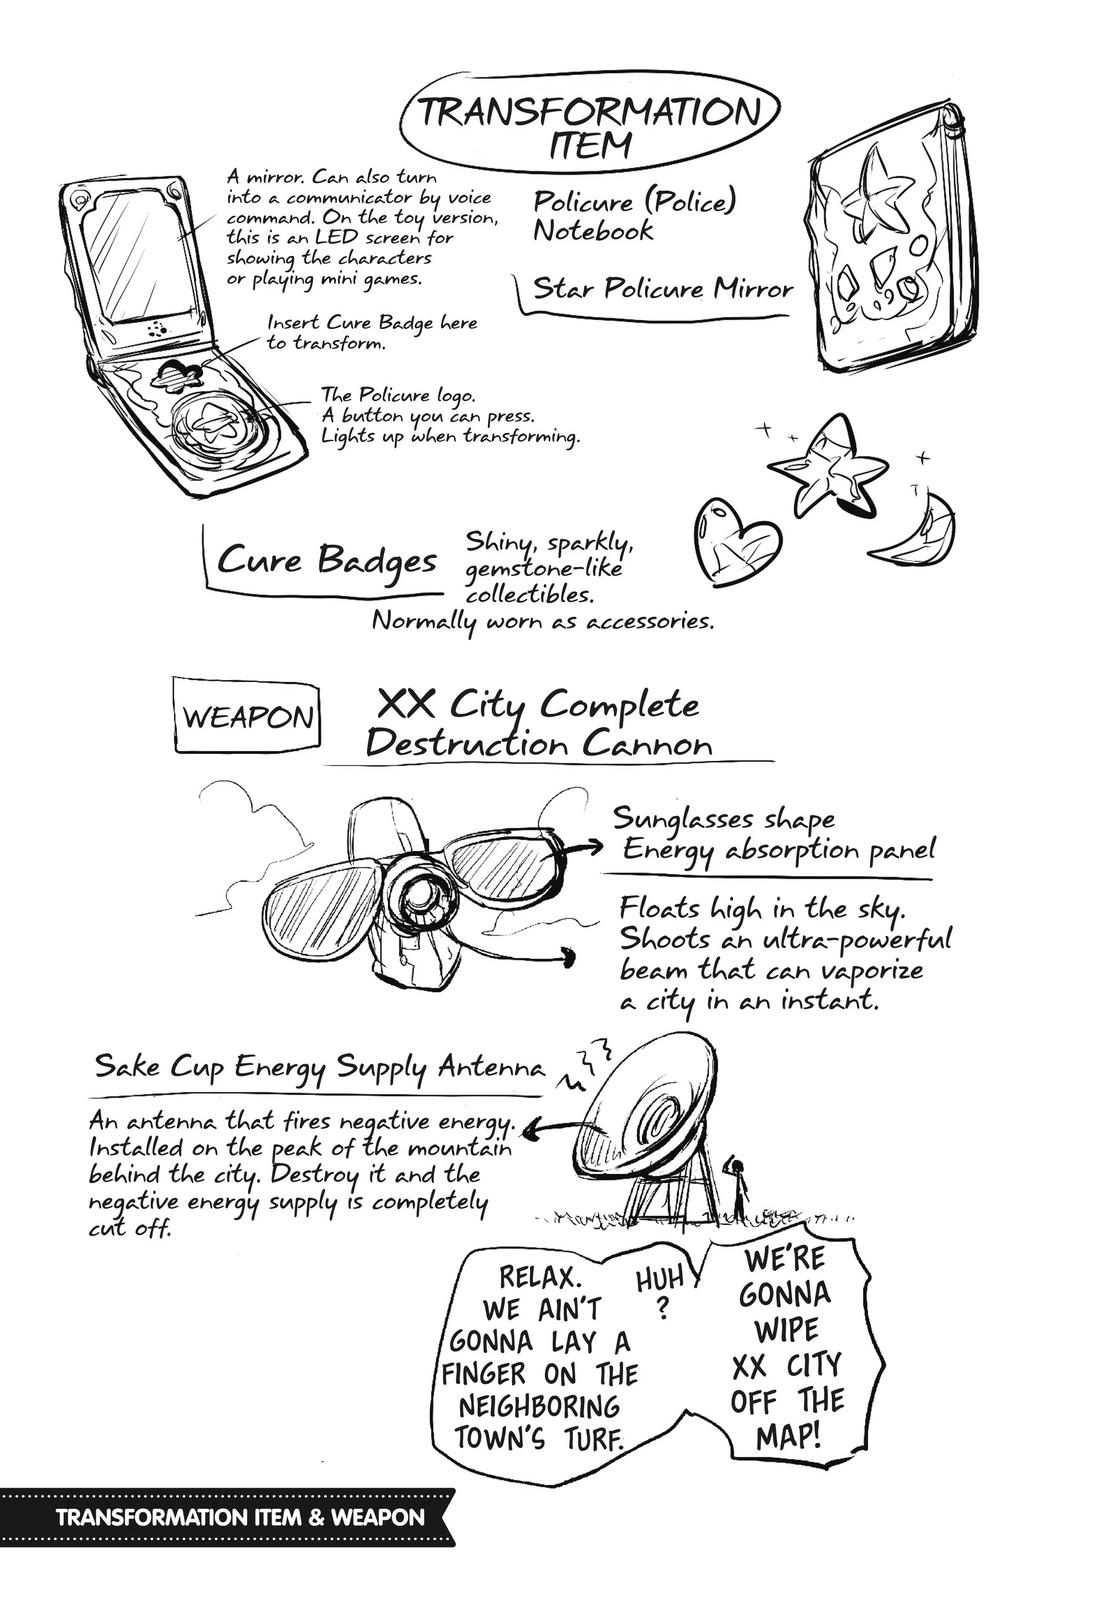 TRANSFORMATION
ITEM
A mirror. Can also turn
into a communicator by voice
command. On the toy version,
this is an LED screen for
showing the characters
or playing mini games.
Policure (Police)
Notebook
Star Policure Mirror
Insert Cure Badge here
to transform.
The Policure logo.
A button you can press.
Lights up when transforming.
Cure Badges
Shiny, sparkly,
gemstone-like
collectibles.
Normally worn as accessories.
WEAPON
XX City Complete
Destruction Cannon
Sunglasses shape
Energy absorption panel
Floats high in the sky.
Shoots an ultra-powerful
beam that can vaporize
a city in an instant.
Sake Cup Energy Supply Antenna
An antenna that fires negative energy.
Installed on the peak of the mountain
behind the city. Destroy it and the
negative energy supply is completely
cut off.
WE'RE
GONNA
WIPE
XX CITY
OFF THE
MAP!
HUH
?
RELAX.
WE AIN'T
GONNA LAY A
FINGER ON THE
NEIGHBORING
TOWN'S TURF.
TRANSFORMATION ITEM & WEAPON